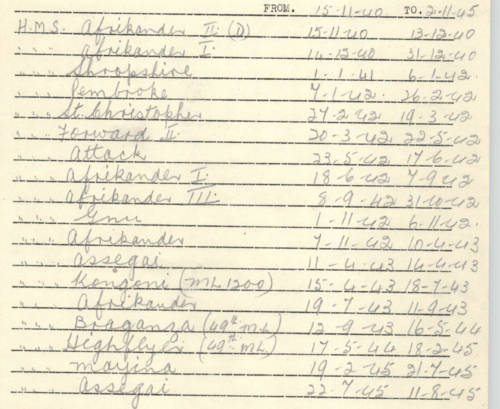 FROM. 15-11-40 TO. 2-11-45
H.M.S. Afrikander II (D) 15-11-40 13-12-40
" " Afrikander I. 14-12-40 31-12-40
" " Shropshire 1-1-41 6-1-42.
" " Pembroke 7-1-42. 26-2-42
" " St. Christopher 27-2-42 19-3-42
" " Forward II. 20-3-42 22-5-42
" " Attack 23-5-42 17-6-42
" " Afrikander I. 18-6-42 7-9-42
" " Afrikander III. 8-9-42 31-10-42
" " Gnu 1-11-42 6-11-42.
" " Afrikander 7-11-42 10-4-43
" " Assegai 11-4-43 14-4-43
" " Kongoni (ML 1200) 15-4-43 18-7-43
" " Afrikander 19-7-43 11-9-43
" " Braganza (49th ML) 12-9-43 16-5-44
" " Highflyer (49th ML) 17-5-44 18-2-45
" " Mayina 19-2-45 21-7-45
" " Assegai 22-7-45 11-8-45